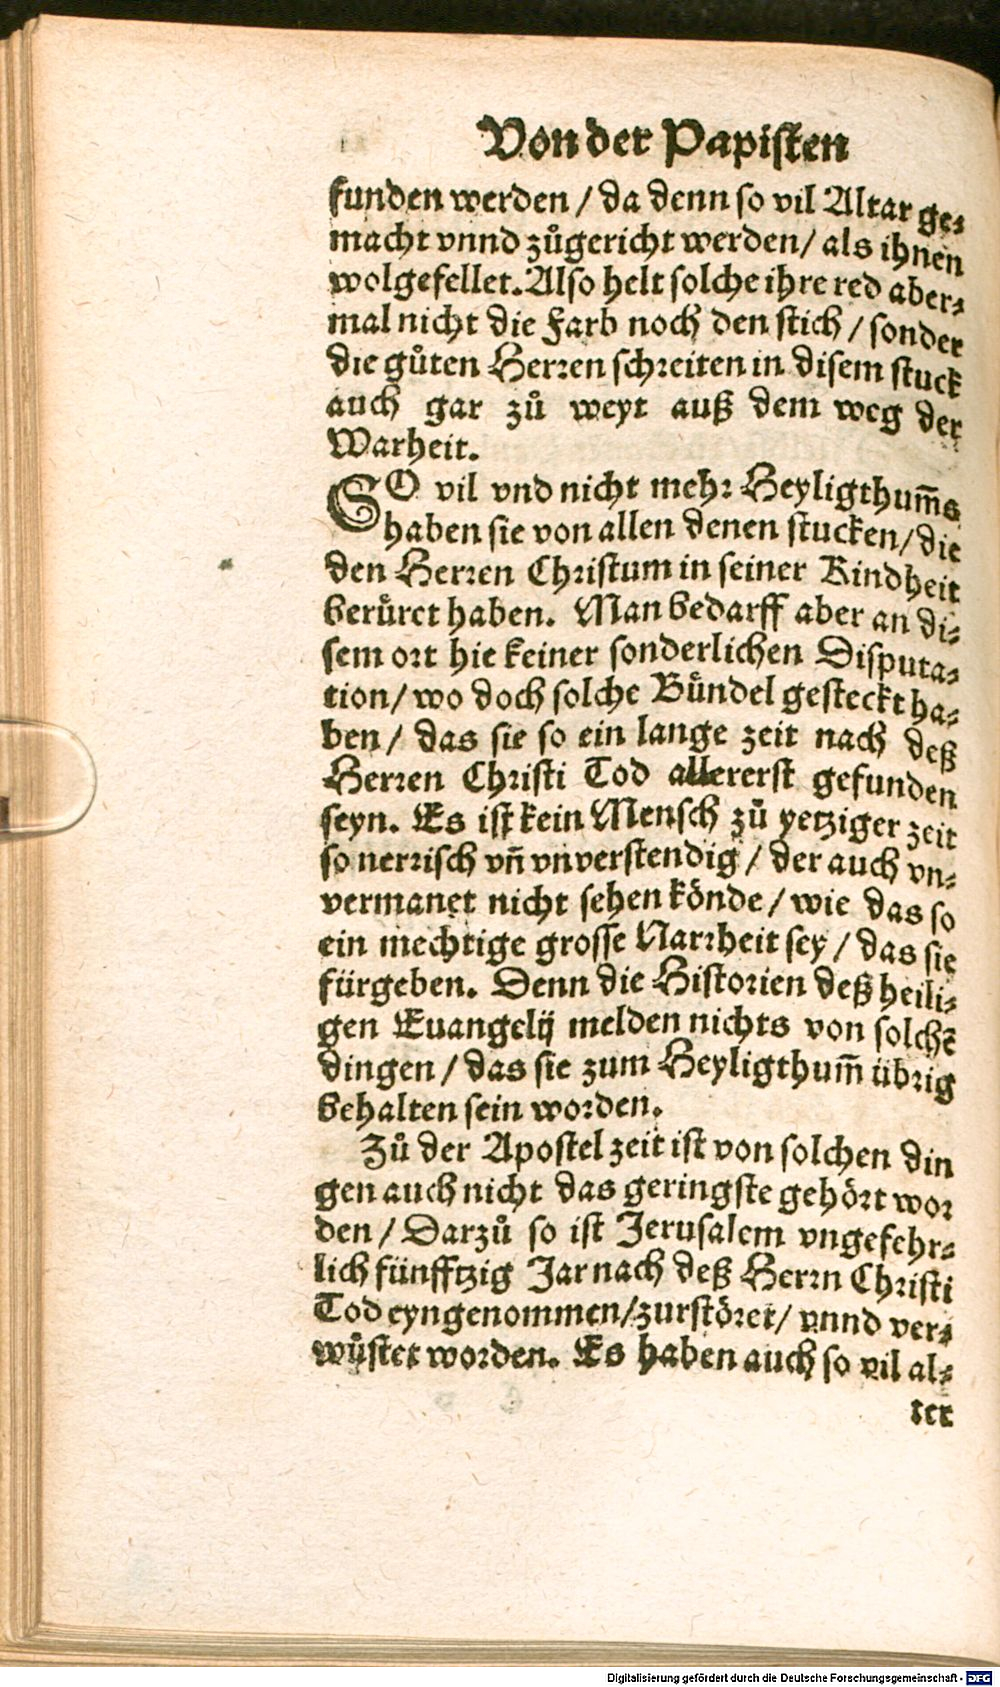 Von der Papisten
funden werden / da denn so vil Altar ge-
macht vnnd zůgericht werden / als ihnen
wolgefellet. Also helt solche ihre red aber-
mal nicht die Farb noch den stich / sonder
die gůten Herren schreiten in disem stuck
auch gar zů weyt auß dem weg der
Warheit.
SO vil vnd nicht mehr Heyligthum̃s
haben sie von allen denen stucken / die
den Herren Christum in seiner Kindheit
berůret haben. Man bedarff aber an di-
sem ort hie keiner sonderlichen Disputa-
tion / wo doch solche Bůndel gesteckt ha-
ben / das sie so ein lange zeit nach deß
Herren Christi Tod allererst gefunden
seyn. Es ist kein Mensch zů yetziger zeit
so nerrisch vñ vnverstendig / der auch vn-
vermanet nicht sehen könde / wie das so
ein mechtige grosse Narrheit sey / das sie
fürgeben. Denn die Historien deß heili-
gen Euangelij melden nichts von solchẽ
dingen / das sie zum Heyligthum̃ übrig
behalten sein worden.
Zů der Apostel zeit ist von solchen din
gen auch nicht das geringste gehört wor
den / Darzů so ist Jerusalem vngefehr-
lich fünfftzig Jar nach deß Herrn Christi
Tod eyngenommen / zurstöret / vnnd ver-
wůstet worden. Es haben auch so vil al-
ter
Digitalisierung gefördert durch die Deutsche Forschungsgemeinschaft - DFG